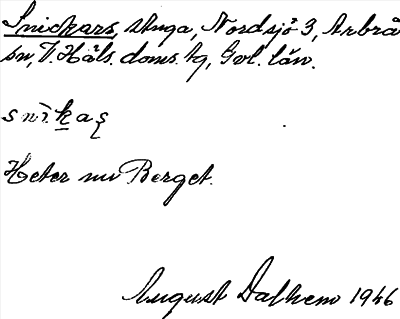 Snickars, stuga, Nordsjö 3, Arbrå
sn, V. Häls. doms. hg, Gvl. län.
sni̅kaş
Heter nu Berget.
August Dalhem 1946